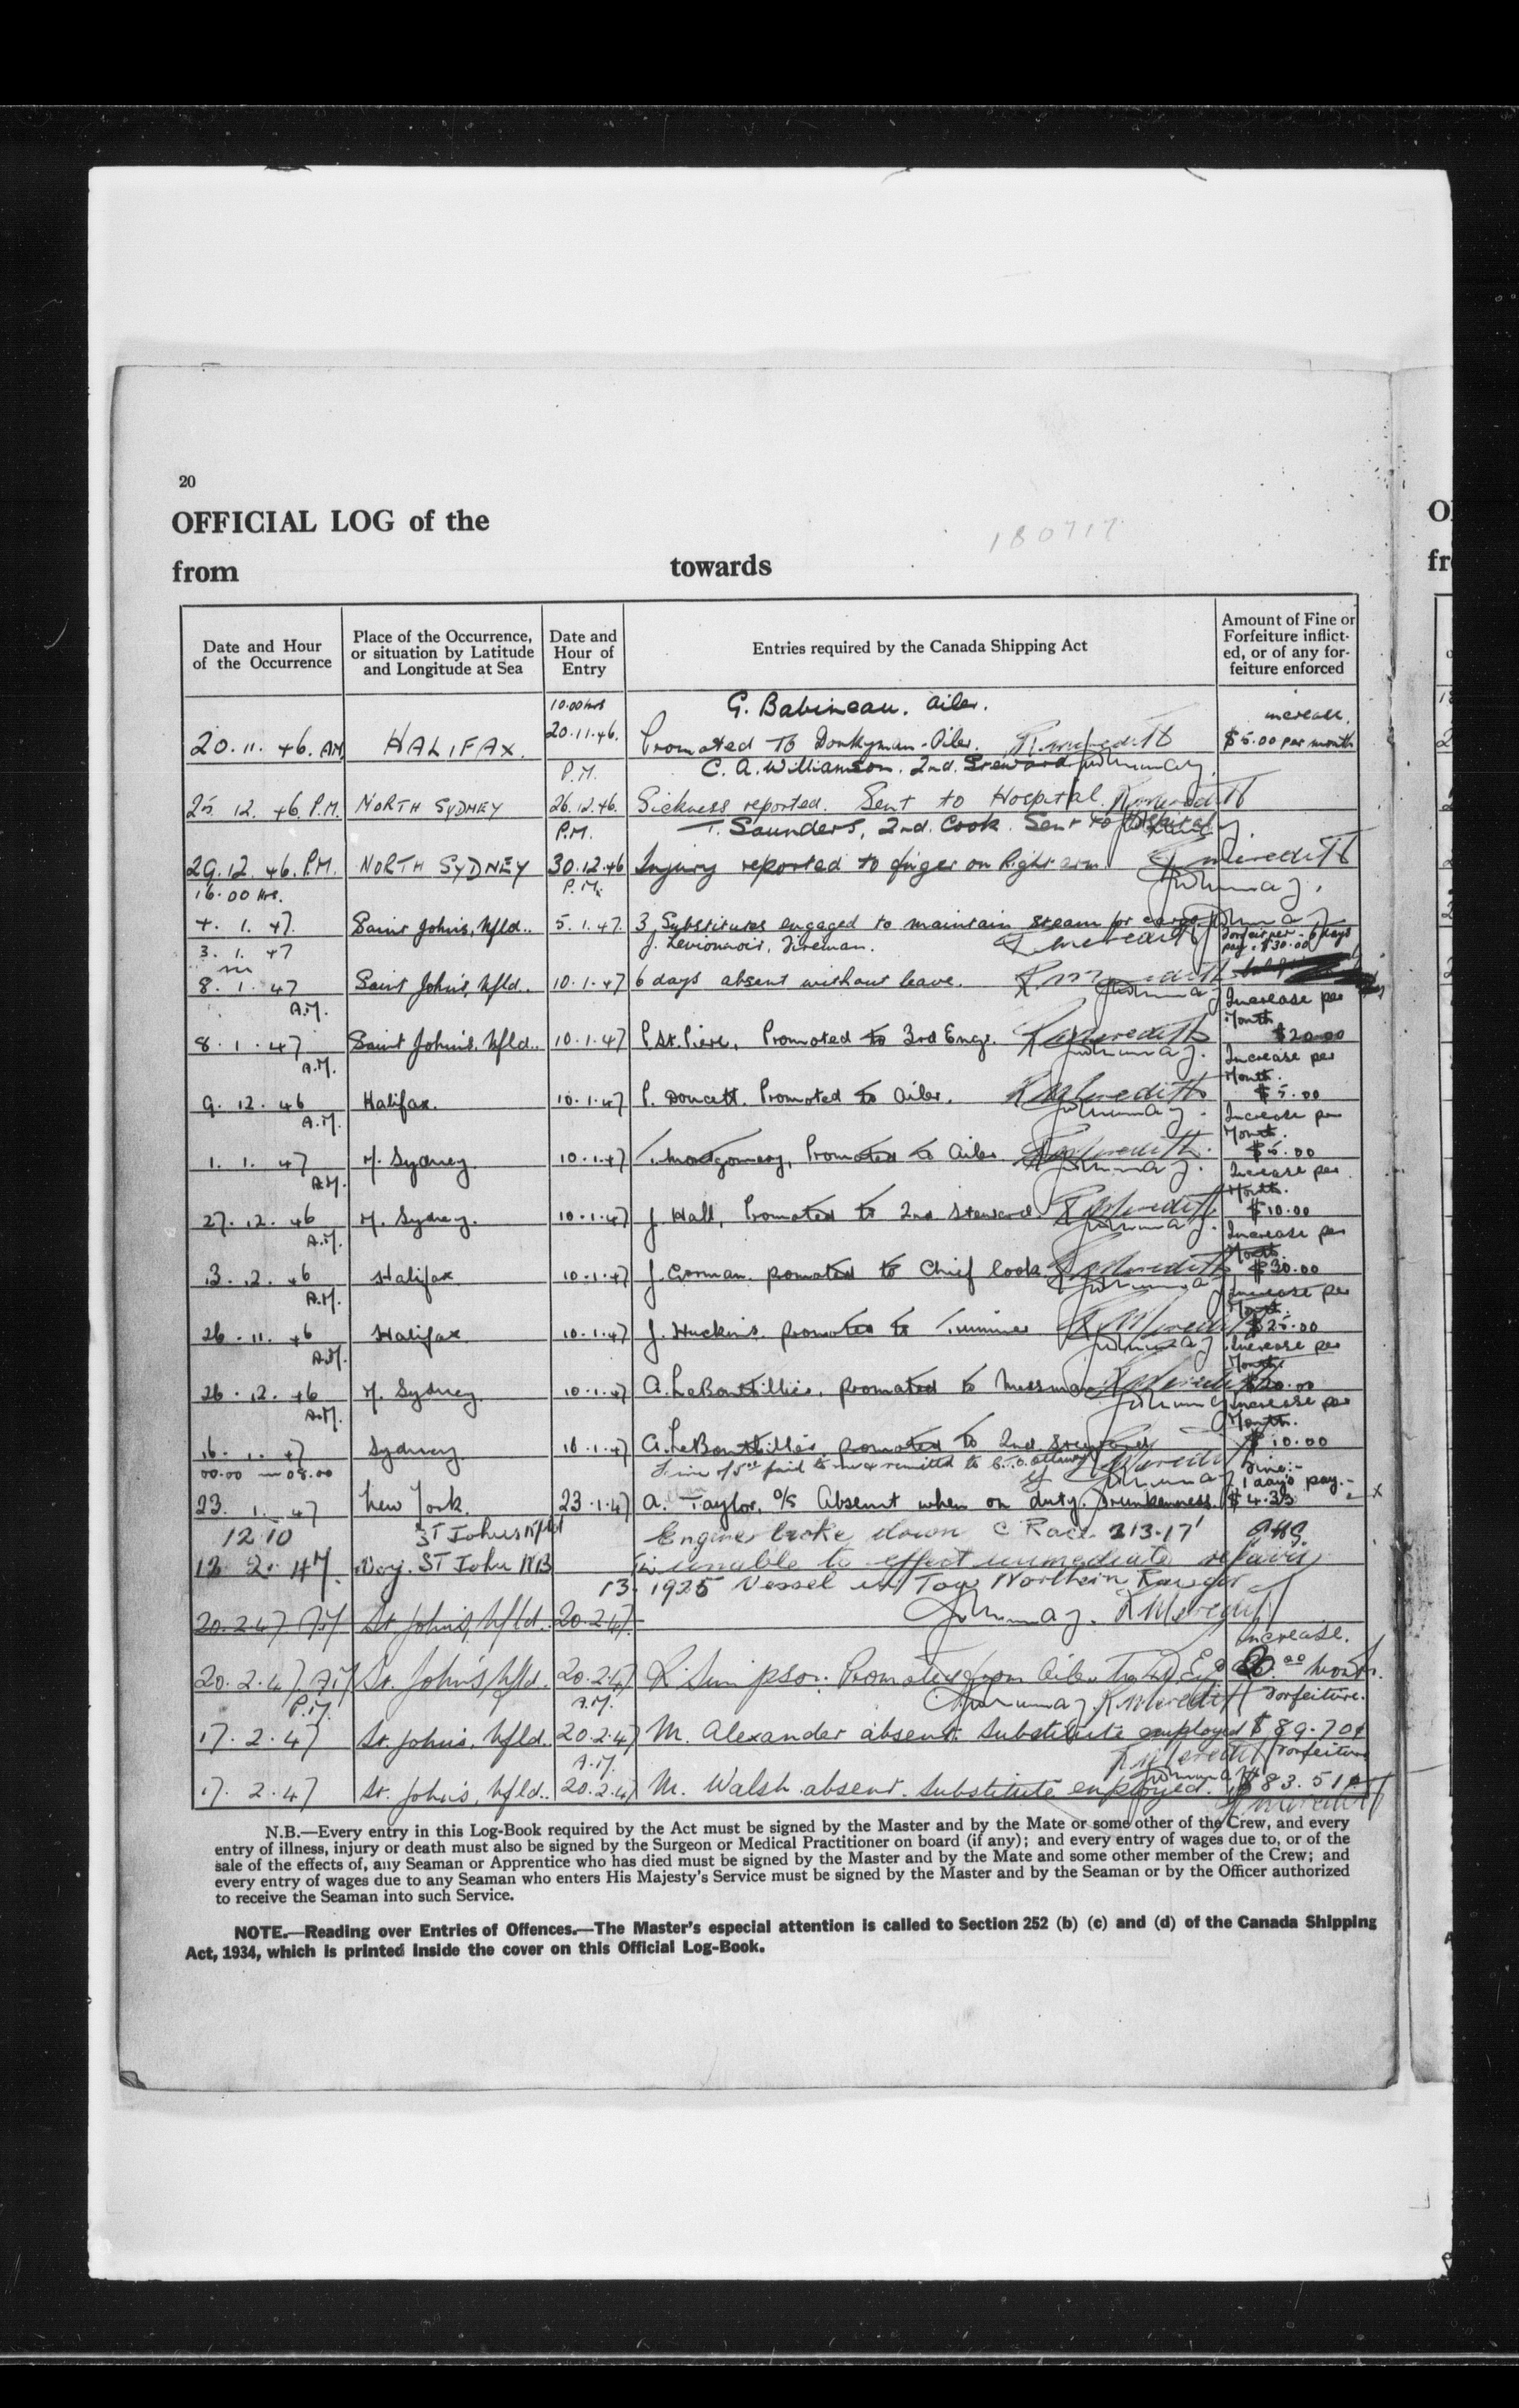 20
OFFICIAL LOG of the
180717
from towards
Date and Hour of the Occurrence
Place of the Occurrence, or situation by Latitude and Longitude at Sea
Date and Hour of Entry
Entries required by the Canada Shipping Act
Amount of Fine or Forfeiture inflicted, or of any forfeiture enforced
10.00 hrs G. Babineau. Oiler. increase.
20.11.46. AM HALIFAX. 20.11.46. Promoted To Donkyman-Oiler. R. Meredith $5.00 per month
P.M. C. A. Williamson. 2nd. Steward
25. 12. 46. P.M. NORTH SYDNEY 26.12.46. Sickness reported. Sent to Hospital. R. Meredith
P.M. T. Saunders, 2nd. Cook. Sent to Hospital
29.12.46. P.M. NORTH SYDNEY 30.12.46 Injury reported to finger on Right arm. R. Meredith
16.00 Hrs. P.M.
4. 1. 47. Saint John's, Nfld.. 5.1.47. 3 Substitutes engaged to maintain steam for cargo
3. 1. 47 Fireman. R. Meredith Forfeiture - 6 days pay. $30.00
8. 1. 47 Saint John's, Nfld.. 10.1.47 6 days absent without leave. R. Meredith
A.M. Increase per Month
8. 1. 47 Saint John's, Nfld.. 10.1.47 P. St. Piere, Promoted to 3rd Engr. R. Meredith $20.00
A.M. Increase per Month.
9. 12. 46 Halifax. 10.1.47 P. Doucett. Promoted to Oiler. R. Meredith $5.00
A.M. Increase per Month.
1. 1. 47 N. Sydney. 10.1.47 T. Montgomery, Promoted to Oiler R. Meredith $5.00
A.M. Increase per Month.
27. 12. 46 N. Sydney. 10.1.47 J. Hall, Promoted to 2nd Steward. R. Meredith $10.00
A.M. Increase per Month.
13. 12. 46 Halifax 10.1.47 J. Gorman. promoted to Chief Cook. R. Meredith $30.00
A.M. Increase per Month.
26. 11. 46 Halifax 10.1.47 J. Huckins. promoted to Trimmer R. Meredith $25.00
A.M. Increase per Month.
26. 12. 46 N. Sydney 10.1.47 A. LeBouthillier, promoted to Messman R. Meredith
A.M. Increase per Month.
16. 1. 47 Sydney 16.1.47 A. LeBouthillier, promoted to 2nd Steward R. Meredith $10.00
00.00 08.00 Fine of paid to remitted to Fine:- 1 days pay.-
23. 1. 47 New York. 23.1.47 A. Taylor, O/S Absent when on duty. Drunkenness. $4.33 x
12 10 St Johns Nfld Engine broke down C Race 213.17'
13 2. 47. Voy. ST John NB unable to effect immediate repairs
13. 1925 Vessel in Tow Northern Ranger
20.2.47 St. John's, Nfld. 20.2.47. R. Meredith
Increase.
20.2.47 St. John's, Nfld. 20.2.47 R. Simpson. Promoted from Oiler to Month.
P.M. A.M. R. Meredith Forfeiture.
17. 2. 47 St. John's, Nfld. 20.2.47 M. Alexander absent. Substitute employed $89.70
A.M. R. Meredith Forfeiture
17. 2. 47 St. John's, Nfld.. 20.2.47 M. Walsh absent. Substitute employed. $83.51
R. Meredith
N.B.—Every entry in this Log-Book required by the Act must be signed by the Master and by the Mate or some other of the Crew, and every
entry of illness, injury or death must also be signed by the Surgeon or Medical Practitioner on board (if any); and every entry of wages due to, or of the
sale of the effects of, any Seaman or Apprentice who has died must be signed by the Master and by the Mate and some other member of the Crew; and
every entry of wages due to any Seaman who enters His Majesty's Service must be signed by the Master and by the Seaman or by the Officer authorized
to receive the Seaman into such Service.
NOTE.—Reading over Entries of Offences.—The Master's especial attention is called to Section 252 (b) (c) and (d) of the Canada Shipping
Act, 1934, which is printed inside the cover on this Official Log-Book.